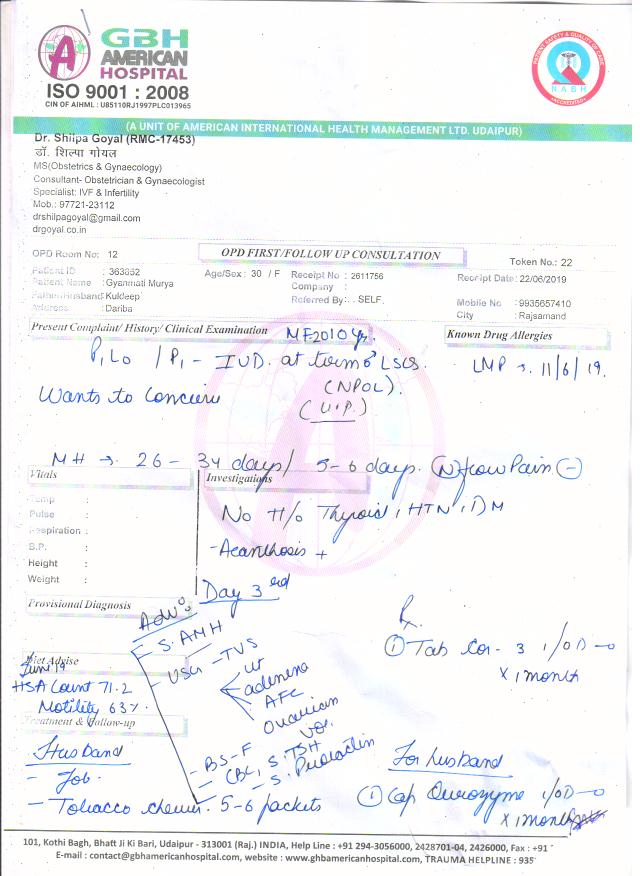 GBH
AMERICAN
HOSPITAL
ISO 9001 : 2008
CIN OF AIHML : U85110RJ1997PLC013965
PATIENT SAFETY & QUALITY OF CARE
NABH
ACCREDITED
(A UNIT OF AMERICAN INTERNATIONAL HEALTH MANAGEMENT LTD. UDAIPUR)
Dr. Shilpa Goyal (RMC-17453)
डॉ. शिल्पा गोयल
MS(Obstetrics & Gynaecology)
Consultant- Obstetrician & Gynaecologist
Specialist: IVF & Infertility
Mob.: 97721-23112
drshilpagoyal@gmail.com
drgoyal.co.in
OPD Room No: 12
OPD FIRST/FOLLOW UP CONSULTATION
Token No.: 22
Patient ID : 363852 Age/Sex : 30 / F Receipt No : 2611756 Receipt Date: 22/06/2019
Patient Name : Gyanmati Murya Company :
Father/Husband: Kuldeep Referred By: . SELF. Mobile No : 9935657410
Address : Dariba City : Rajsamand
Present Complaint/ History/ Clinical Examination MF2010 Known Drug Allergies
P1L0 / P1 - IUD. at term LSCS. LMP → 11/6/19.
(NPOL).
Wants to Conceive
(U.P.)
MH → 26 - 34 days/ 5-6 days. (N) flow Pain (-)
Vitals Investigations
Temp :
Pulse : No H/o Thyroid, HTN, DM
Respiration :
B.P. : - Acanthosis +
Height :
Weight : Day 3rd
Provisional Diagnosis
Adv:
- S. AMH
Rx.
(1) Tab Cor- 3 1/OD
x 1 month
- USG - TVS
ut
adenexa
AFC
Ovarian
vol.
Diet Advise
June 19
HSA Count 71.2
Motility 63%.
Treatment & Follow-up
- BS-F
- CBC, S. TSH
- S. Prolactin
Husband
- Job.
- Tobacco chewer. 5-6 packets
For husband
(1) Cap 1/OD
x 1 month
101, Kothi Bagh, Bhatt Ji Ki Bari, Udaipur - 313001 (Raj.) INDIA, Help Line : +91 294-3056000, 2428701-04, 2426000, Fax : +91
E-mail : contact@gbhamericanhospital.com, website : www.gbhamericanhospital.com, TRAUMA HELPLINE : 935